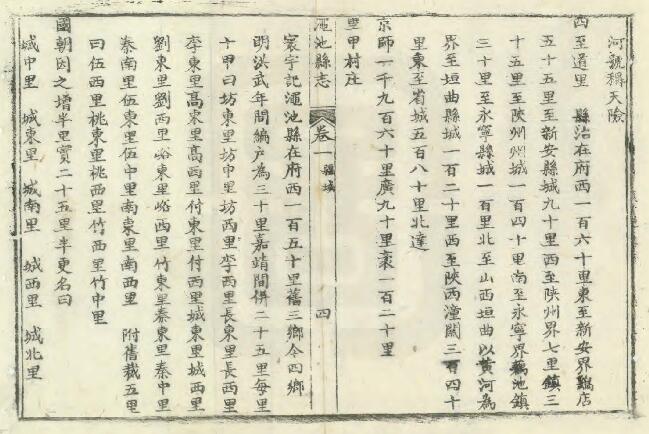 河號稱天險
四至道里　縣治在府西一百六十里東至新安界鐵店
五十五里至新安縣城九十里西至陝州界七里鎮三
十五里至陝州州城一百四十里南至永寧界藕池鎮
三十里至永寧縣城一百里北至山西垣曲以黃河為
界至垣曲縣城一百二十里西至陝西潼關三百四十
里東至省城五百八十里北達
京師一千九百六十里廣九十里袤一百二十里
里甲村庄
澠池縣志　卷一　疆域　四
寰宇記澠池縣在府西一百五十里舊三鄉今四鄉
明洪武年間編户為三十里嘉靖間併二十五里每里
十甲曰坊東里坊中里坊西里李西里長東里長西里
李東里高東里高西里付東里付西里城東里城西里
劉東里劉西里峪東里峪西里竹東里秦東里秦中里
秦南里伍東里伍中里南東里南西里　附舊裁五里
曰伍西里桃東里桃西里竹西里竹中里
國朝因之增半里實二十五里半更名曰
城中里　城東里　城南里　城西里　城北里